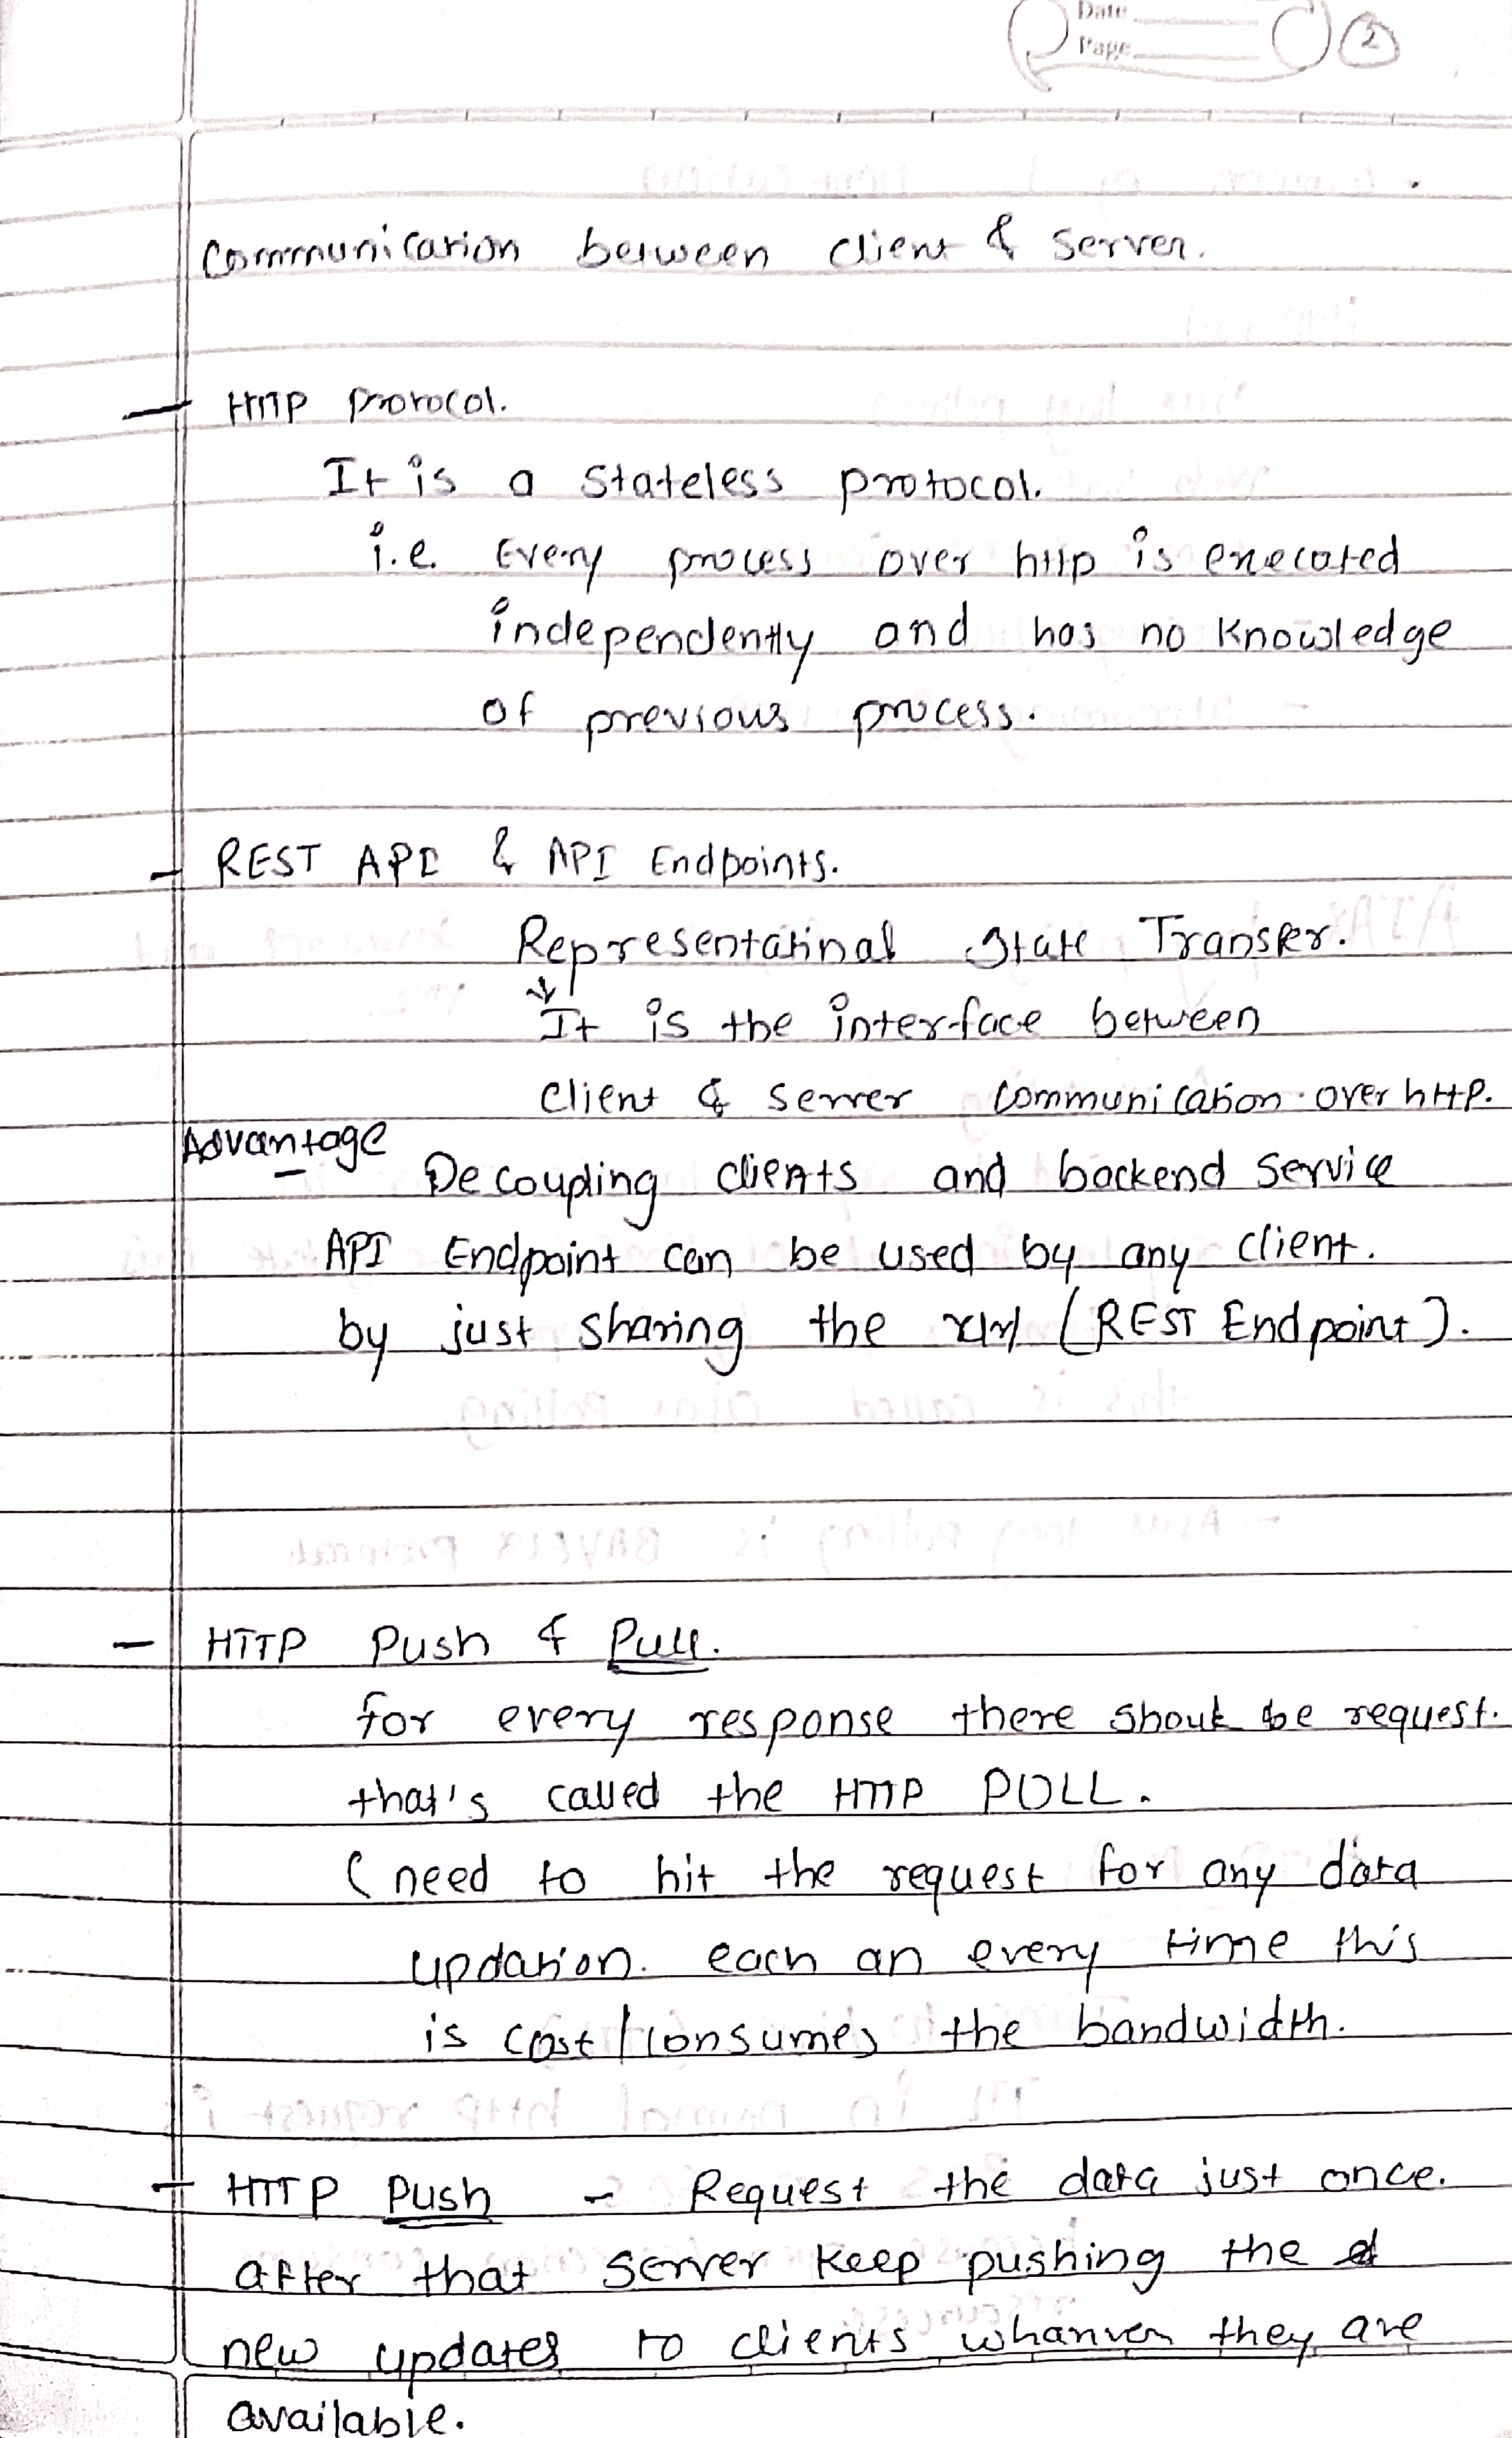 Date
Page
2
Communication between client & server.
— HTTP protocol.
It is a stateless protocol.
i.e. Every process over http is execated
independently and has no knowledge
of previous process.
- REST API & API Endpoints.
Representatinal State Transfer.
↓
It is the interface between
client & server communication over http.
Advantage
Decoupling clients and backend service
API Endpoint can be used by any client.
by just sharing the (REST Endpoint).
— HTTP Push & Pull.
for every response there should be request.
that's called the HTTP POLL.
(need to hit the request for any data
updation. each an every time this
is cost/consumes the bandwidth.
- HTTP Push - Request the data just once.
after that server keep pushing the
new updates to clients whanver they are
available.